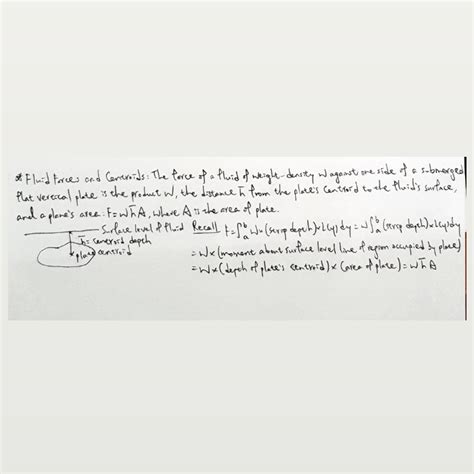 * Fluid Forces and Centroids: The force of a fluid of weight-density w against one side of a submerged
flat vertical plate is the product w, the distance h̄ from the plate's centroid to the fluid's surface,
and a plane's area. F = w h̄ A, where A is the area of plate.
Surface level of fluid Recall F = ∫ₐᵇ w × (strip depth) × L(y) dy = w ∫ₐᵇ (strip depth) × L(y) dy
h̄ = centroid depth = w × (moment about surface level line of region occupied by plate)
plate centroid = w × (depth of plate's centroid) × (area of plate) = w h̄ A